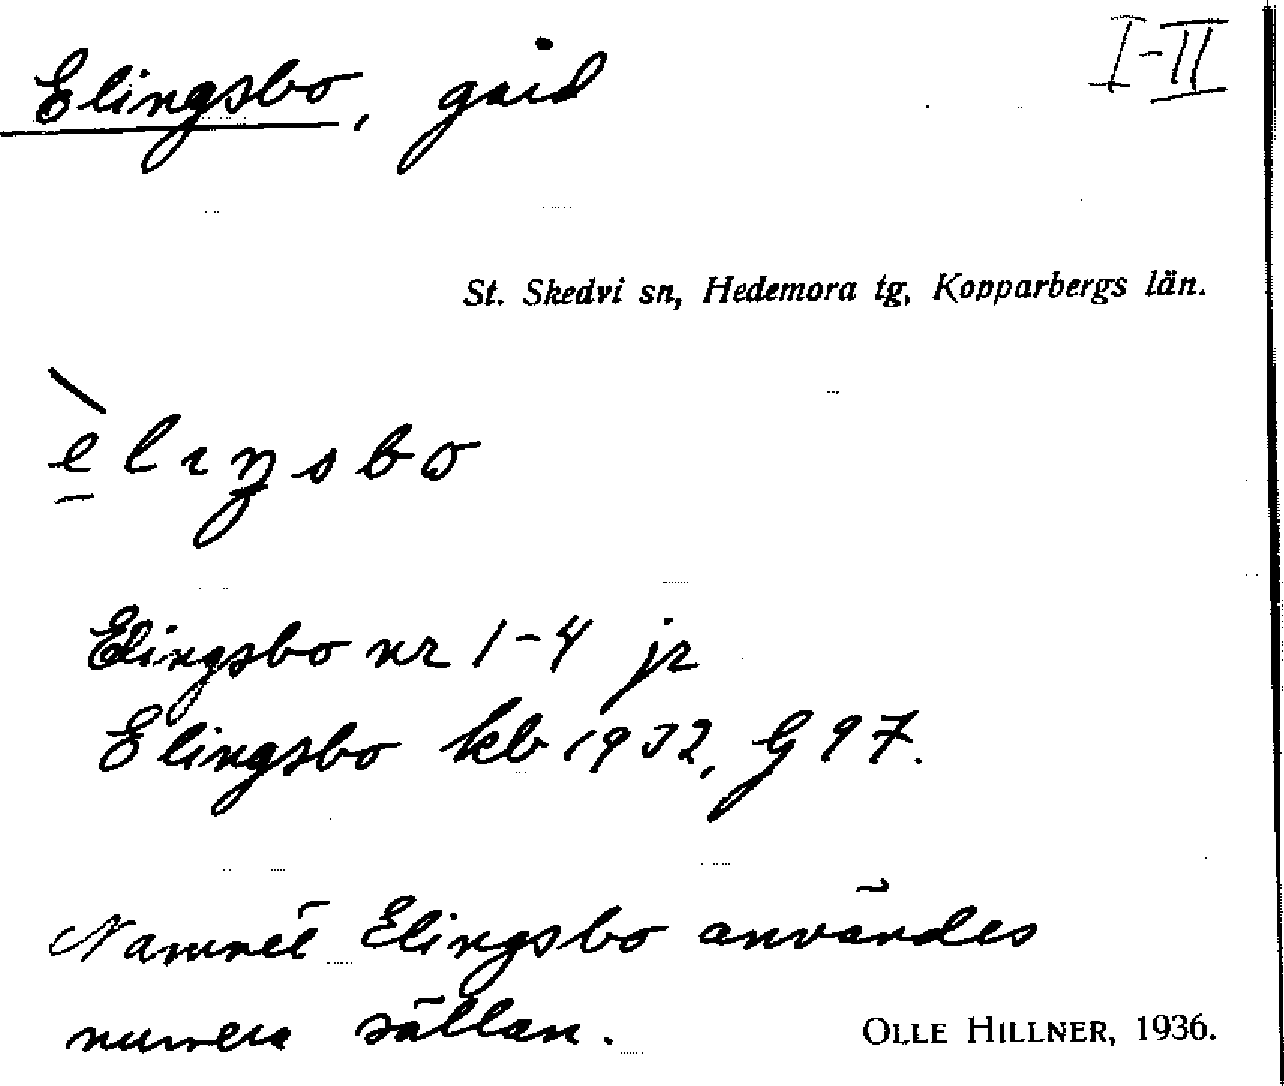 Elingsbo, gård I-II
St. Skedvi sn, Hedemora tg, Kopparbergs län.
è̱lıŋsbo
Elingsbo nr 1-4 jr
Elingsbo kb 1932, G 97.
Namnet Elingsbo användes
numera sällan.
OLLE HILLNER, 1936.